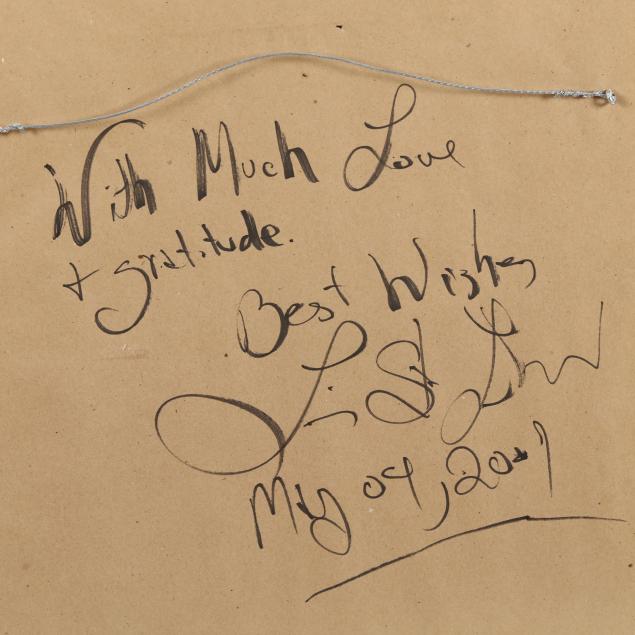 With Much Love
+ gratitude.
Best Wishes
May 04, 2001